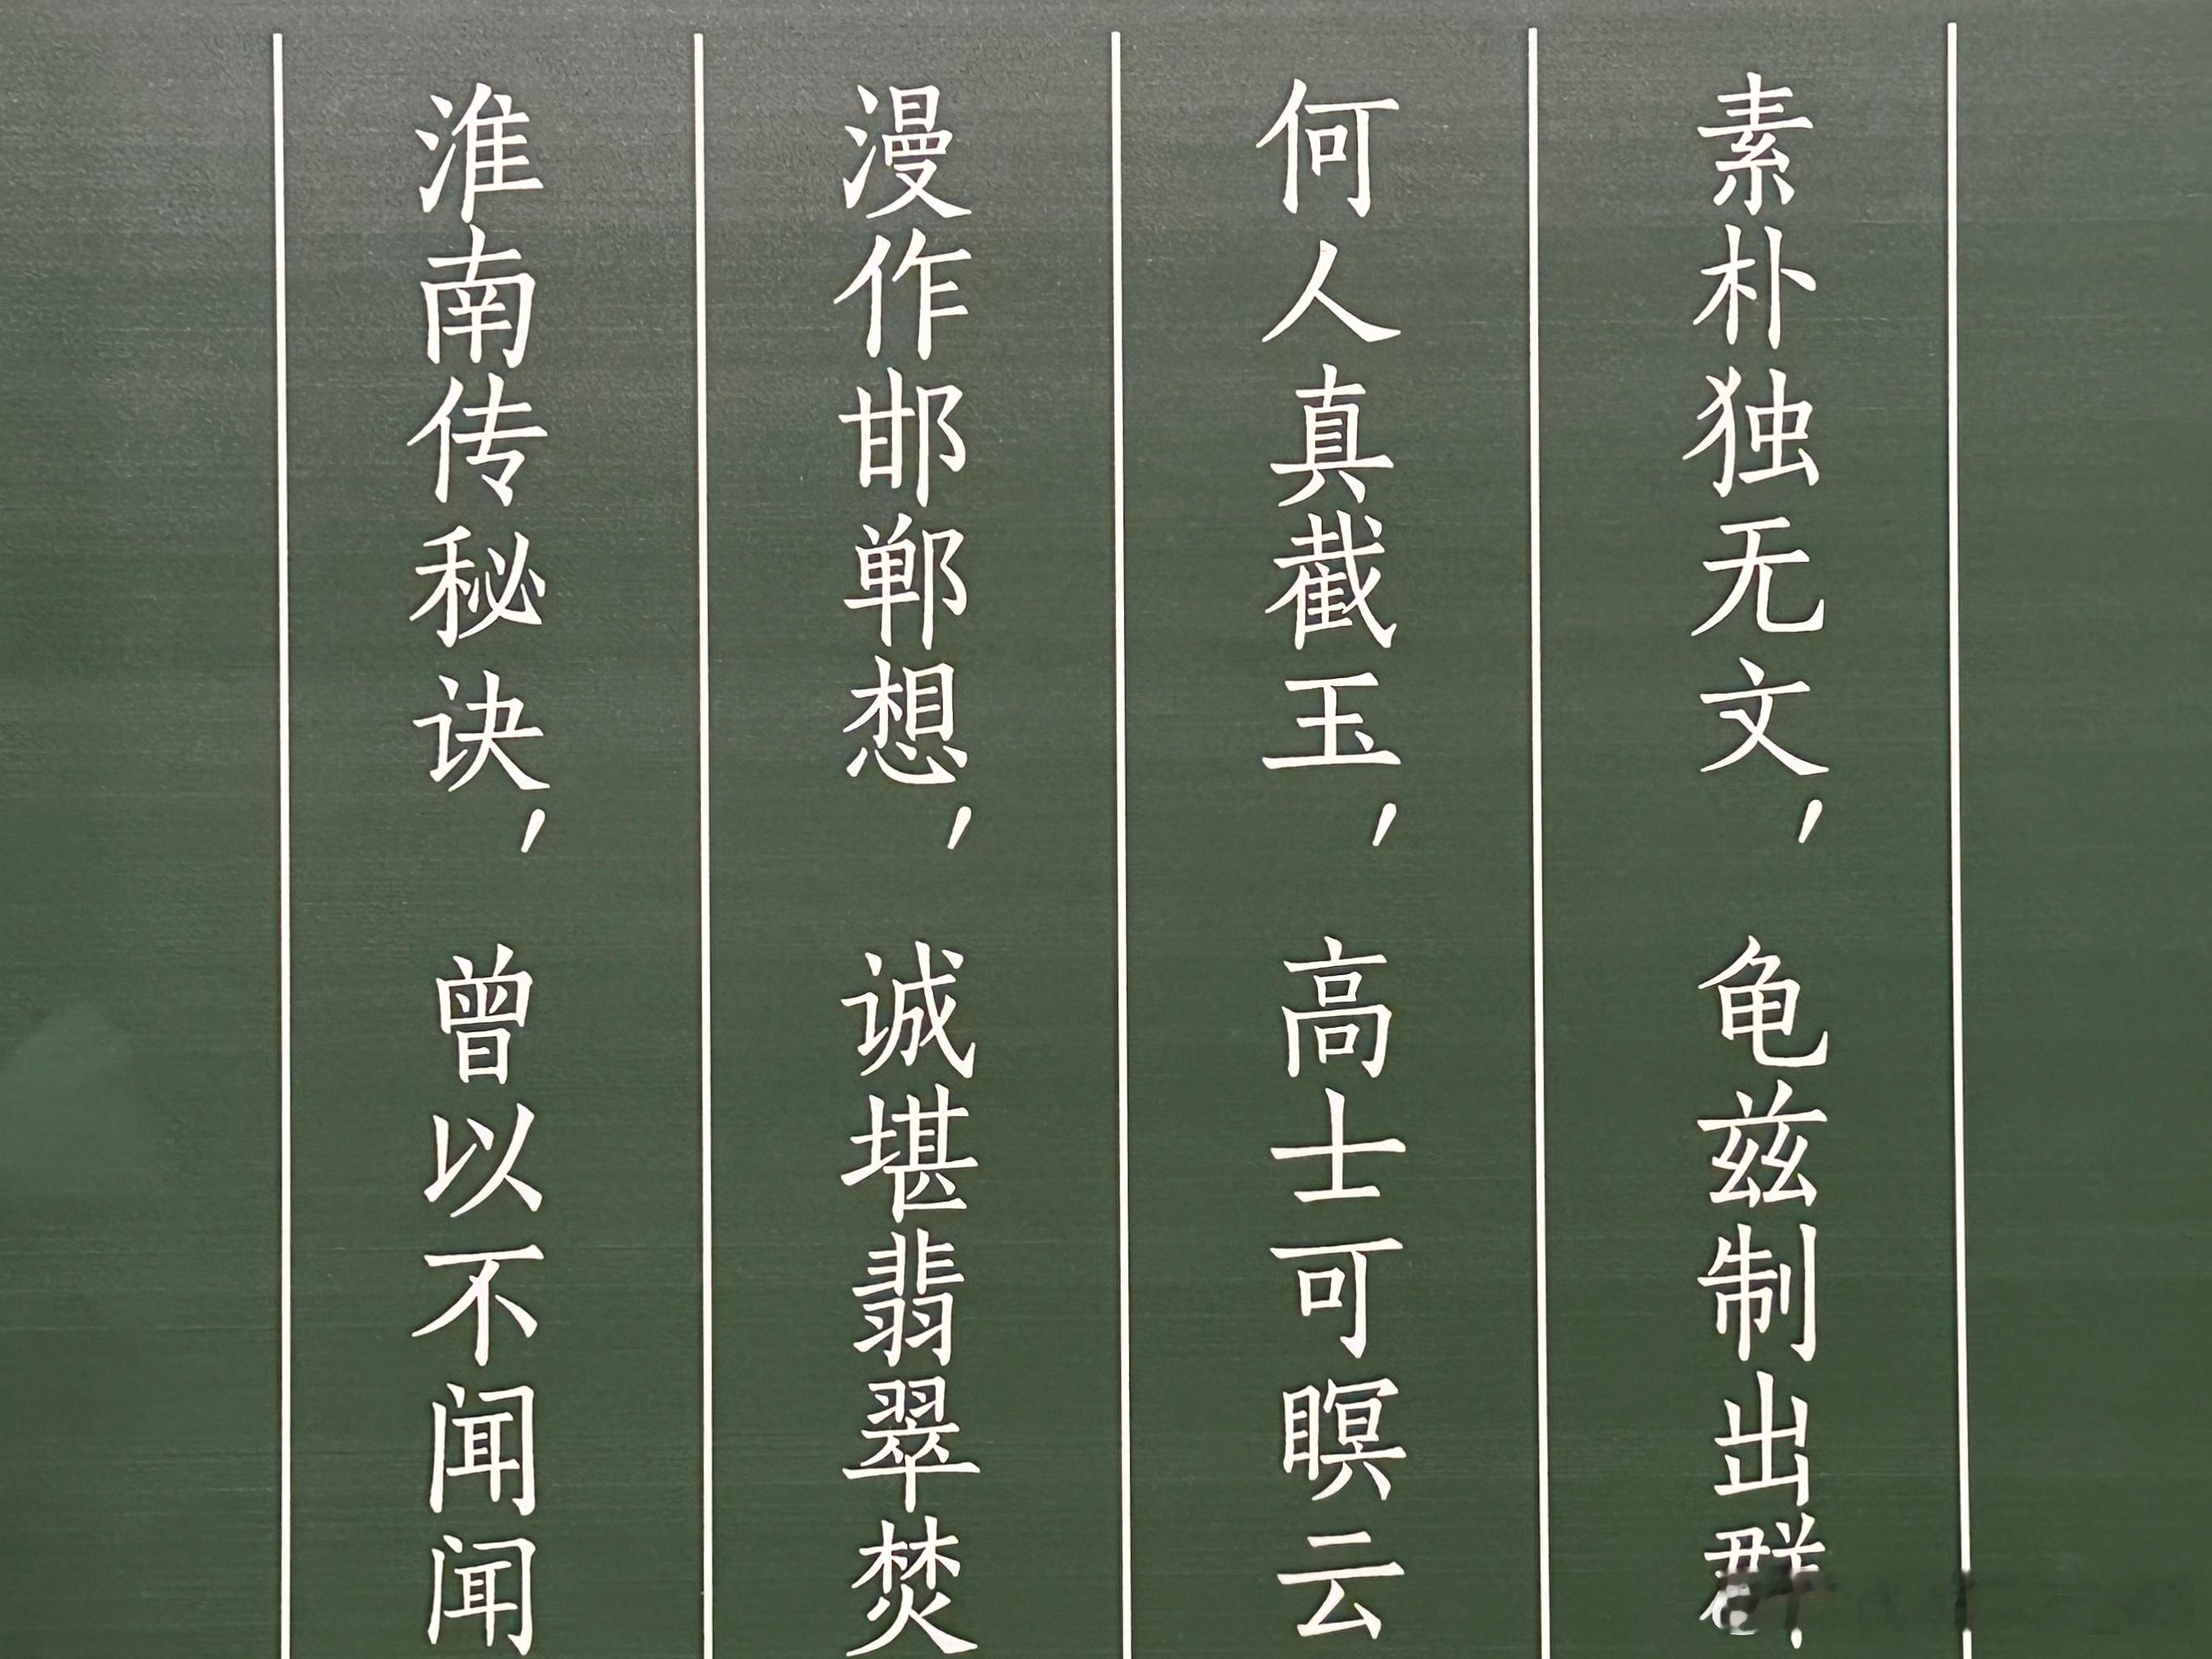 素朴独无文，龟兹制出群
何人真截玉，高士可瞑云
漫作邯郸想，诚堪翡翠焚
淮南传秘诀，曾以不闻闻